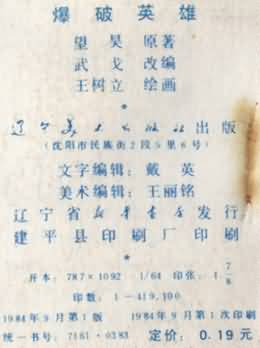 爆破英雄
望昊 原著
武戈 改编
王树立 绘画
辽宁美术出版社出版
(沈阳市民族街2段5里6号)
文字编辑: 戴英
美术编辑: 王丽铭
辽宁省新华书店发行
建平县印刷厂印刷
开本: 787×1092 1/64 印张: 1 7/8
印数: 1—419,100
1984年9月第1版 1984年9月第1次印刷
统一书号: 7161·0383 定价: 0.19元